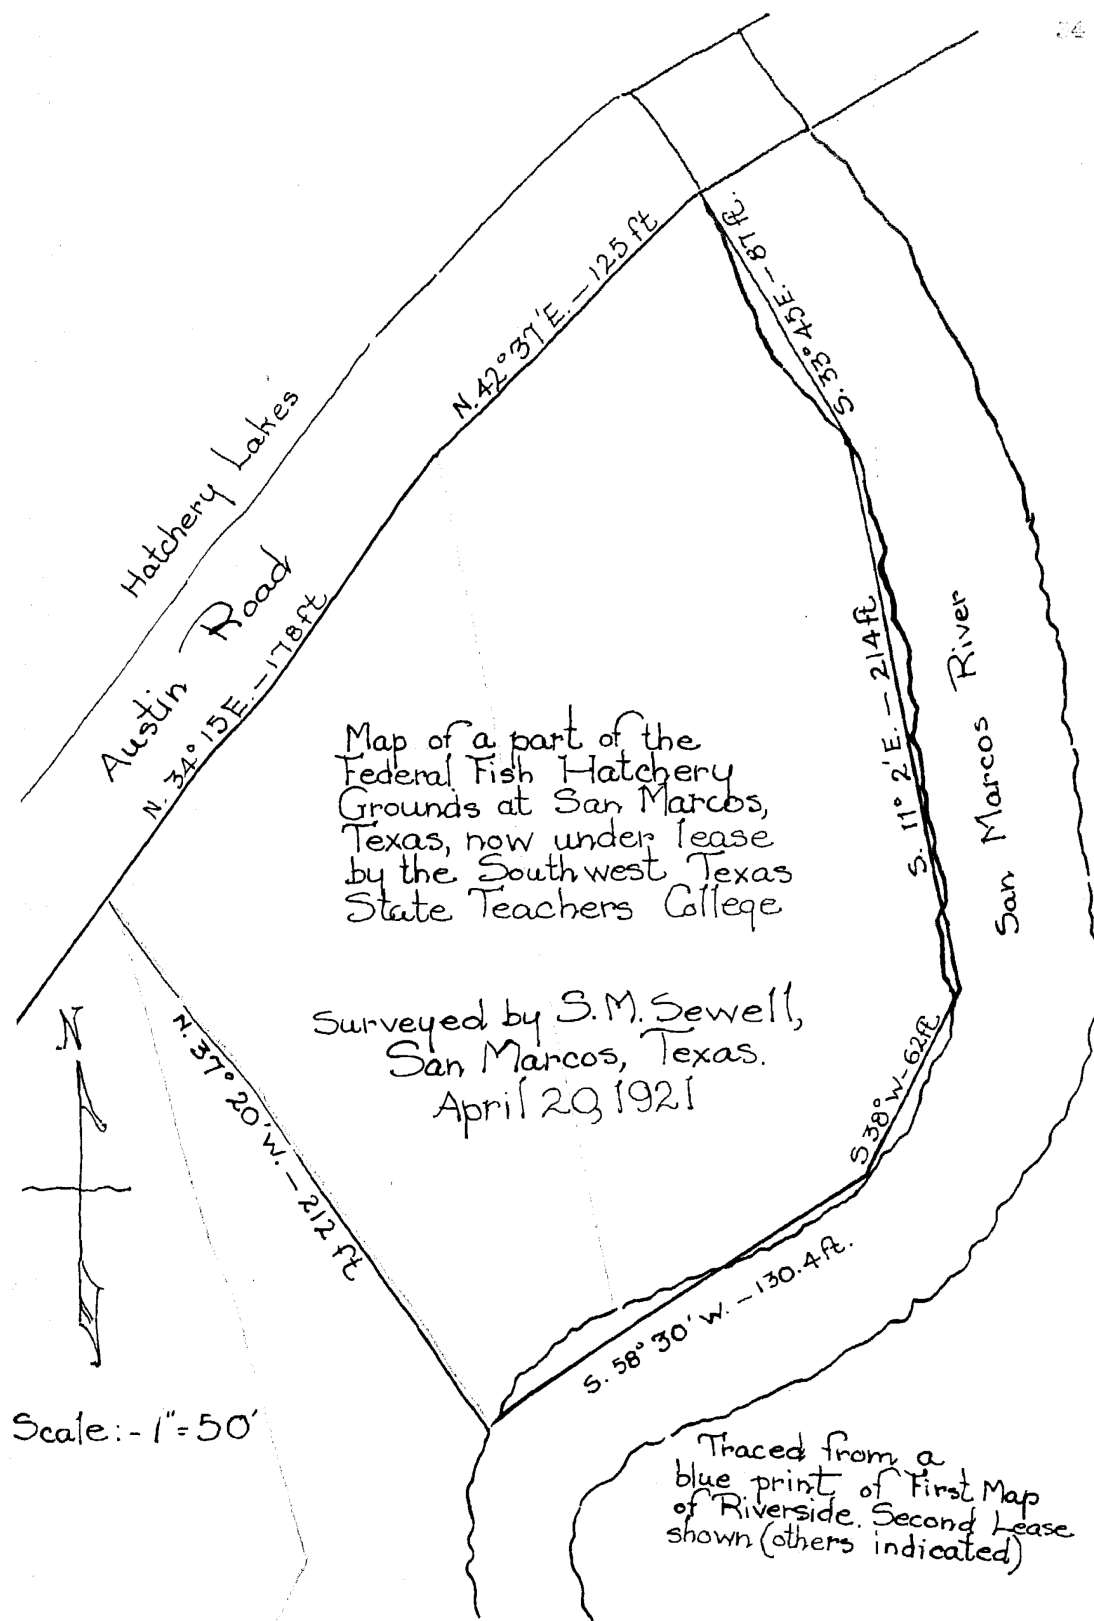 Hatchery Lakes
Austin Road
N. 34° 15 E. - 178 ft
N. 42° 37' E. - 125 ft
S. 33° 45 E. - 87 ft.
S. 11° 2' E. - 214 ft
San Marcos River
S 38° W - 62 ft.
S. 58° 30' W. - 130.4 ft.
N. 37° 20' W. - 212 ft
Map of a part of the
Federal Fish Hatchery
Grounds at San Marcos,
Texas, now under lease
by the Southwest Texas
State Teachers College
Surveyed by S.M. Sewell,
San Marcos, Texas.
April 20, 1921
N
Scale:- 1"=50'
Traced from a
blue print of First Map
of Riverside. Second Lease
shown (others indicated)